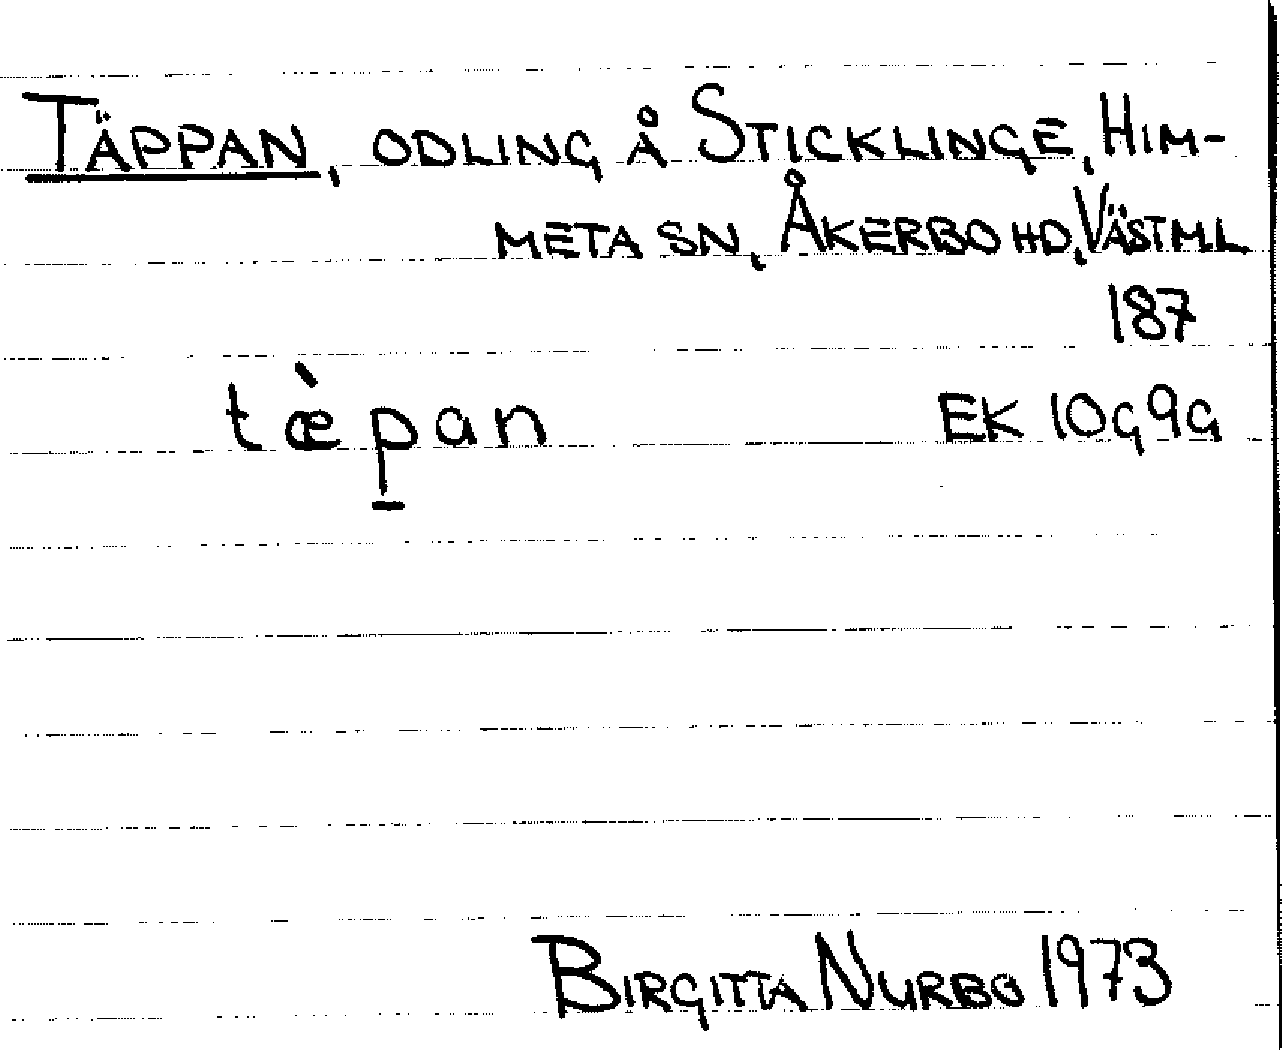 TÄPPAN, ODLING Å STICKLINGE, HIM-
META SN, ÅKERBO HD, VÄSTML
187
tæ̀p̠an EK 10G9G
BIRGITTA NURBO 1973